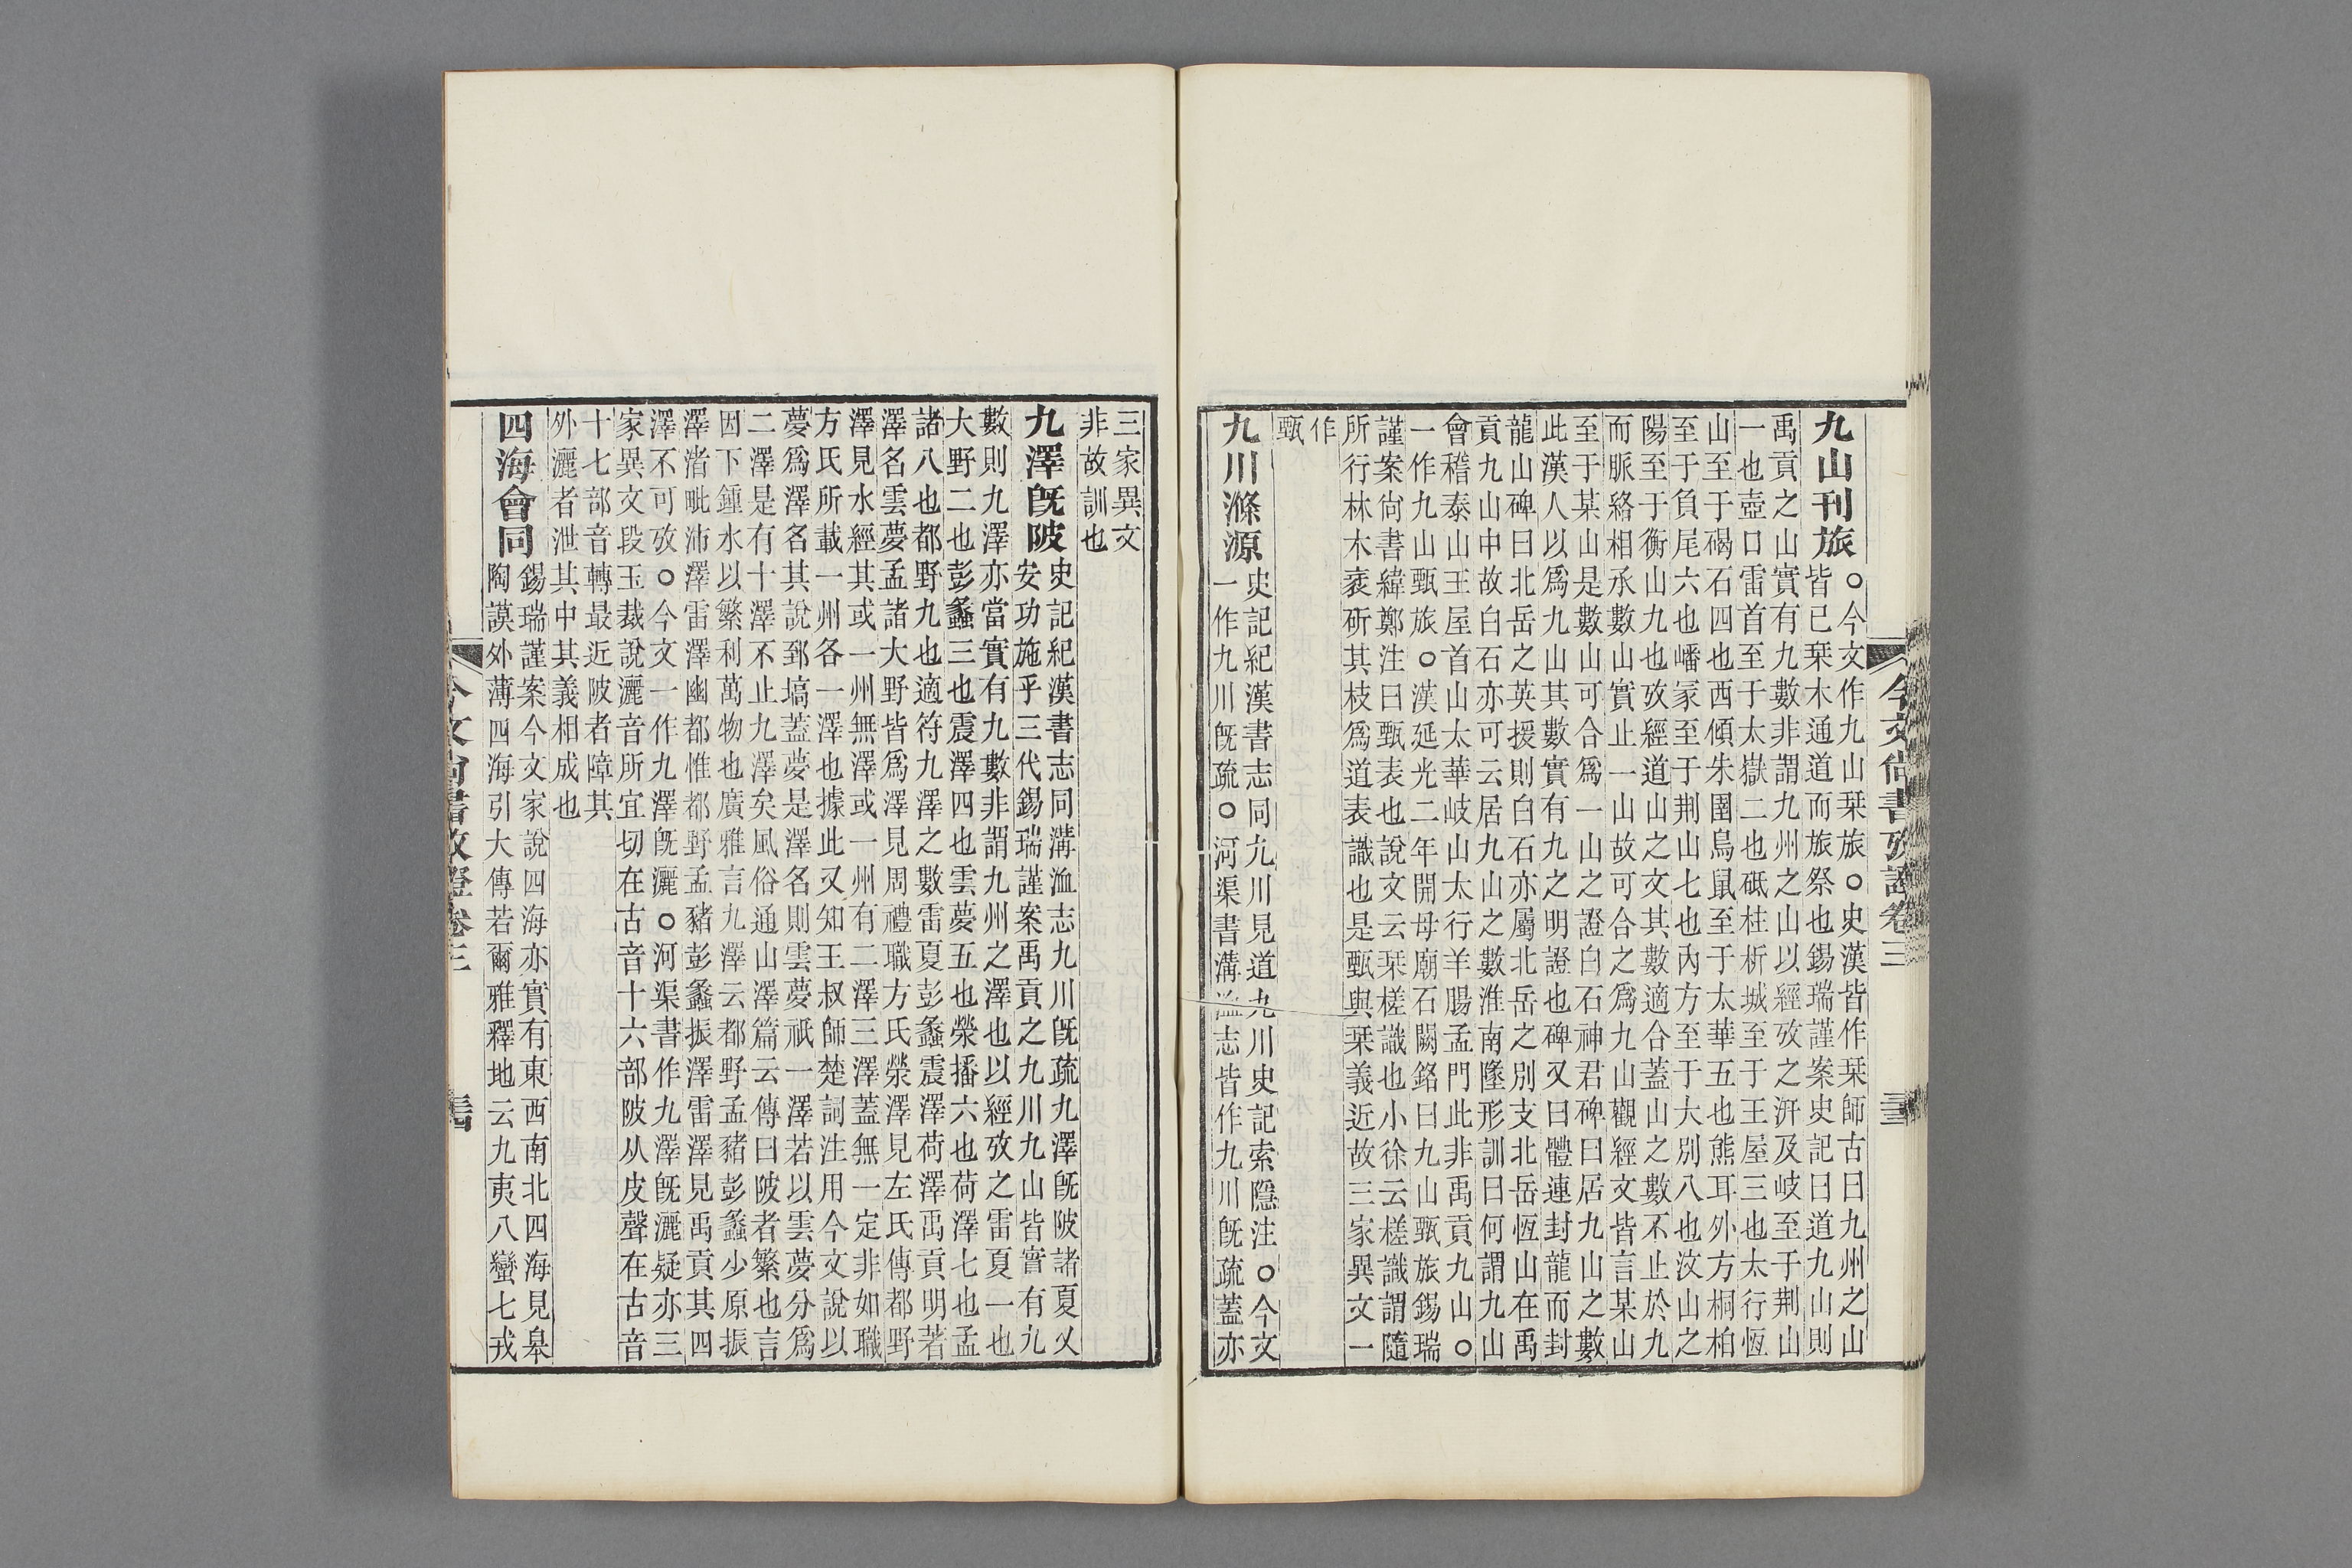 今文尚書攷證卷三
九山刊旅
○今文作九山栞旅○史漢皆作栞師古曰九州之山
皆已栞木通道而旅祭也錫瑞謹案史記曰道九山則
禹貢之山實有九數非謂九州之山以經攷之汧及岐至于荆山
一也壺口雷首至于太嶽二也砥柱析城至于王屋三也太行恆
山至于碣石四也西傾朱圉鳥鼠至于太華五也熊耳外方桐柏
至于負尾六也嶓冢至于荆山七也內方至于大別八也汶山之
陽至于衡山九也攷經道山之文其數適合蓋山之數不止於九
而脈絡相承數山實止一山故可合之爲九山觀經文皆言某山
至于某山是數山可合爲一山之證白石神君碑曰居九山之數
此漢人以爲九山其數實有九之明證也碑又曰體連封龍而封
龍山碑曰北岳之英援則白石亦屬北岳之別支北岳恆山在禹
貢九山中故白石亦可云居九山之數淮南墬形訓曰何謂九山
會稽泰山王屋首山太華岐山太行羊腸孟門此非禹貢九山○
一作九山甄旅○漢延光二年開母廟石闕銘曰九山甄旅錫瑞
謹案尙書緯鄭注曰甄表也說文云栞槎識也小徐云槎識謂隨
所行林木衺斫其枝爲道表識也是甄與栞義近故三家異文一
作
甄
九川滌源
史記紀漢書志同九川見道九川史記索隱注○今文
一作九川旣疏○河渠書溝洫志皆作九川旣疏蓋亦
三家異文
非故訓也
九澤旣陂
史記紀漢書志同溝洫志九川旣疏九澤旣陂諸夏乂
安功施乎三代錫瑞謹案禹貢之九川九山皆實有九
數則九澤亦當實有九數非謂九州之澤也以經攷之雷夏一也
大野二也彭蠡三也震澤四也雲夢五也滎播六也荷澤七也孟
諸八也都野九也適符九澤之數雷夏彭蠡震澤荷澤禹貢明著
澤名雲夢孟諸大野皆爲澤見周禮職方氏滎澤見左氏傳都野
澤見水經其或一州無澤或一州有二澤三澤蓋無一定非如職
方氏所載一州各一澤也據此又知王叔師楚詞注用今文說以
夢爲澤名其說郅塙蓋夢是澤名則雲夢祇一澤若以雲夢分爲
二澤是有十澤不止九澤矣風俗通山澤篇云傳曰陂者繁也言
因下鍾水以繁利萬物也廣雅言九澤云都野孟豬彭蠡少原振
澤渚毗沛澤雷澤幽都惟都野孟豬彭蠡振澤雷澤見禹貢其四
澤不可攷○今文一作九澤旣灑○河渠書作九澤旣灑疑亦三
家異文段玉裁說灑音所宜切在古音十六部陂从皮聲在古音
十七部音轉最近陂者障其
外灑者泄其中其義相成也
四海會同
錫瑞謹案今文家說四海亦實有東西南北四海見皋
陶謨外薄四海引大傳若爾雅釋地云九夷八蠻七戎